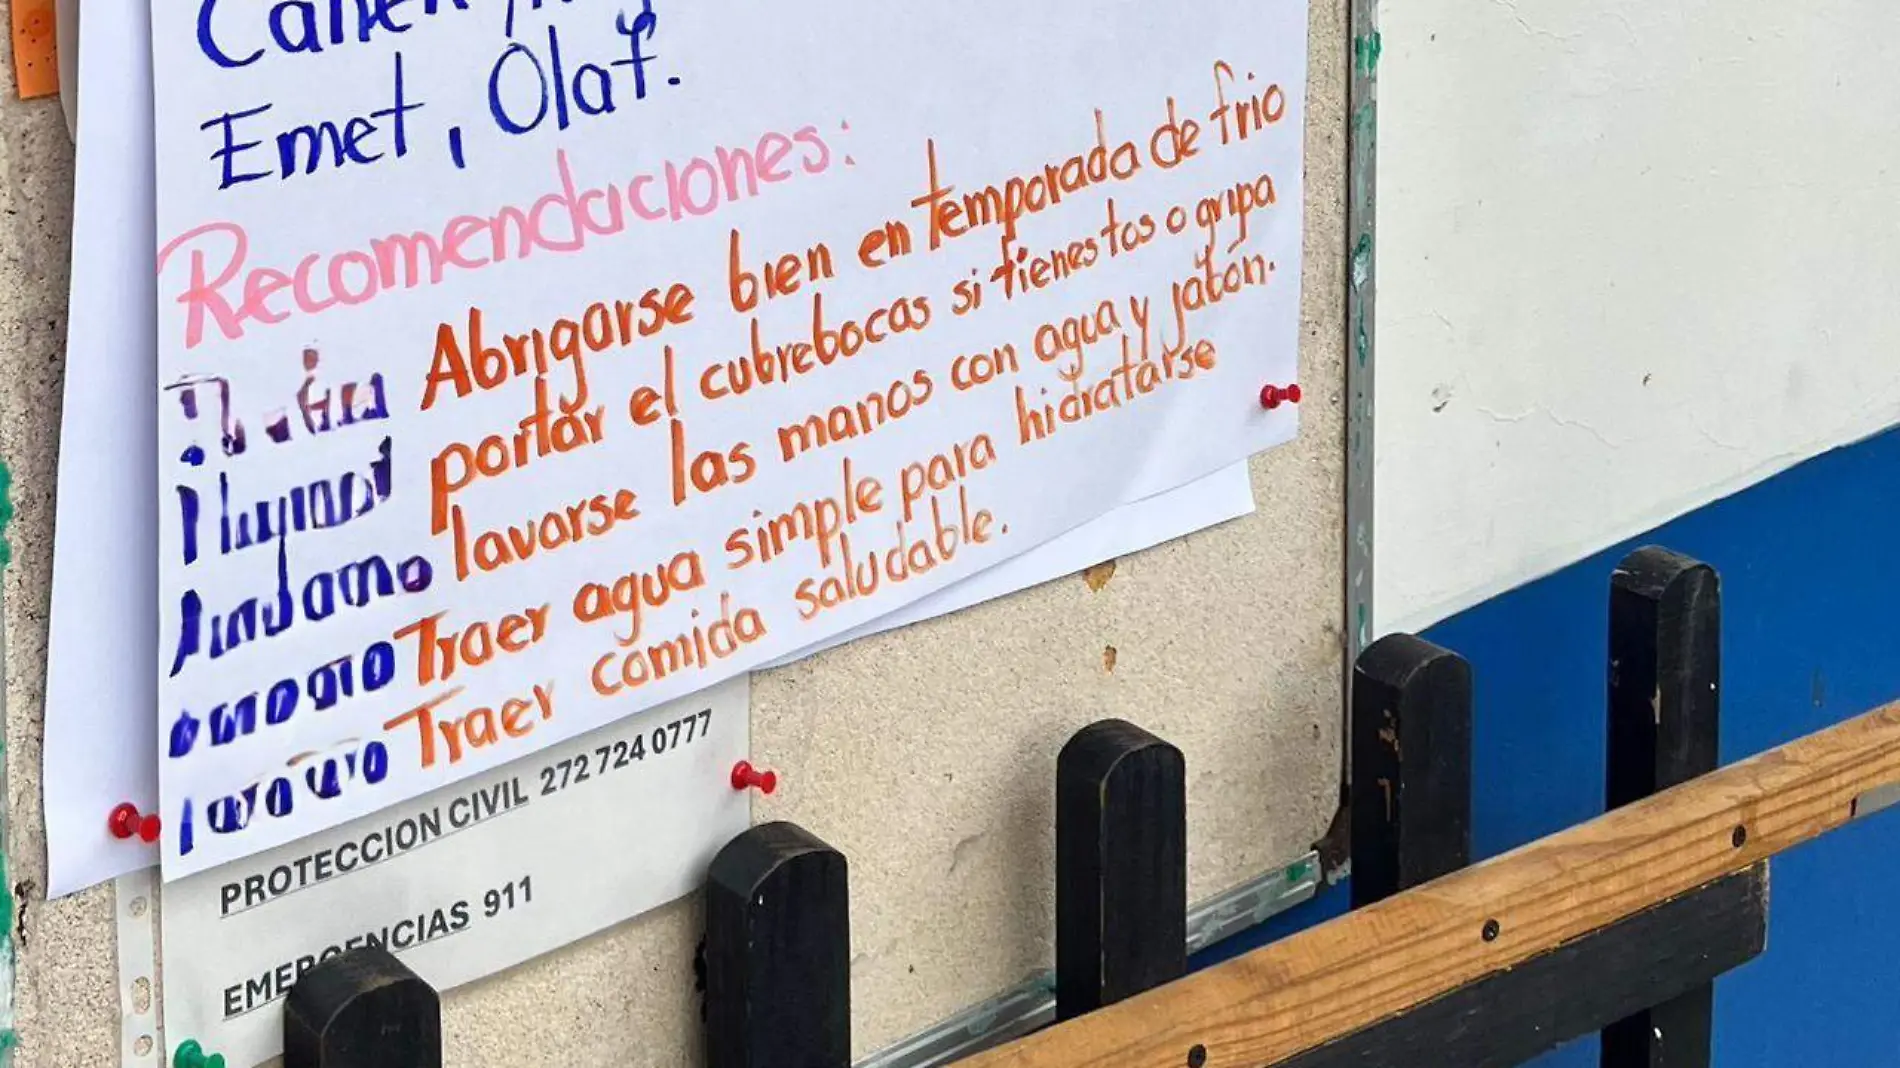 Emet, Olaf.
Recomendaciones:
Abrigarse bien en temporada de frio
portar el cubrebocas si tienes tos o gripa
lavarse las manos con agua y jabón.
Traer agua simple para hidratarse
Traer comida saludable.
PROTECCION CIVIL 272 724 0777
EMERGENCIAS 911